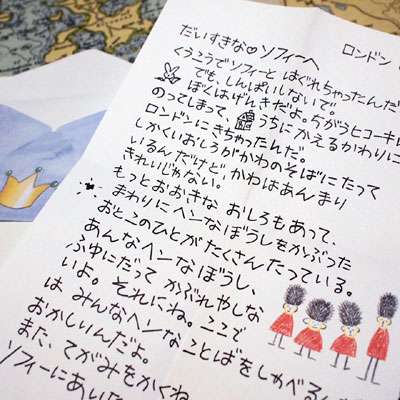 ロンドン
だいすきな♡ソフィーへ
くうこうでソフィーと はぐれちゃったんだ
でも、しんぱいしないで。
ぼくはげんきだよ。ちがうヒコーキに
のってしまって、うちに かえるかわりに
ロンドンにきちゃったんだ。
しかくいおしろがかわのそばにたって
いるんだけど、かわはあんまり
きれいじゃない。
もっとおおきな おしろもあって、
まわりにヘンなぼうしをかぶった
おとこのひとが たくさんたっている。
あんなヘンなぼうし、
ふゆにだって かぶれやしな
いよ。それにね。ここで
は みんなヘンな ことばをしゃべる
おかしいんだよ。
また、てがみをかくね
ソフィーにあいた